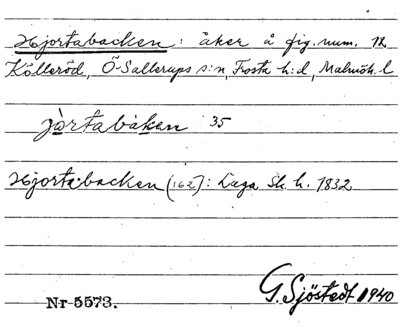 Hjortabacken: åker å fig. num. 12
Kölleröd, Ö-Sallerups s:n, Frosta h:d, Malmöh. l
jòrtabàken 35
Hjorta-backen (162): Laga Sk. h. 1832
G. Sjöstedt 1940
Nr 5573.